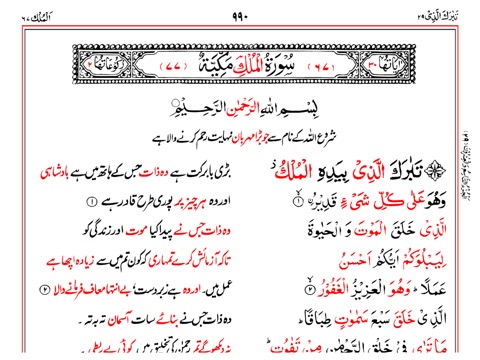 تَبٰرَكَ الَّذِیْ ٢٩
٩٩٠
اَلْمُلْك ٦٧
اٰیَاتُهَا ٣٠
(٦٧) سُوْرَةُ الْمُلْكِ مَكِّیَّةٌ (٧٧)
رُكُوْعَاتُهَا ٢
بِسْمِ اللّٰهِ الرَّحْمٰنِ الرَّحِیْمِ
شروع اللہ کے نام سے جو بڑا مہربان نہایت رحم کرنے والا ہے
تَبٰرَكَ الَّذِیْ بِیَدِهِ الْمُلْكُ
بڑی بابرکت ہے وہ ذات جس کے ہاتھ میں ہے بادشاہی
وَهُوَ عَلٰی كُلِّ شَیْءٍ قَدِیْرُ ۝١
اور وہ ہر چیز پر پوری طرح قادر ہے ۝١
الَّذِیْ خَلَقَ الْمَوْتَ وَ الْحَیٰوةَ
وہ ذات جس نے پیدا کیا موت اور زندگی کو
لِیَبْلُوَكُمْ اَیُّكُمْ اَحْسَنُ
تاکہ آزمائش کرے تمہاری کہ کون تم میں سے زیادہ اچھا ہے
عَمَلًا ؕ وَهُوَ الْعَزِیْزُ الْغَفُوْرُ ۝٢
عمل میں۔ اور وہ ہے زبردست، بے انتہا معاف فرمانے والا ۝٢
الَّذِیْ خَلَقَ سَبْعَ سَمٰوٰتٍ طِبَاقًا ؕ
وہ ذات جس نے بنائے سات آسمان تہ بہ تہ۔
مَا تَرٰی فِیْ خَلْقِ الرَّحْمٰنِ مِنْ تَفٰوُتٍ ؕ
نہ دیکھو گے تم رحمٰن کی تخلیق میں کوئی بے ربطی۔